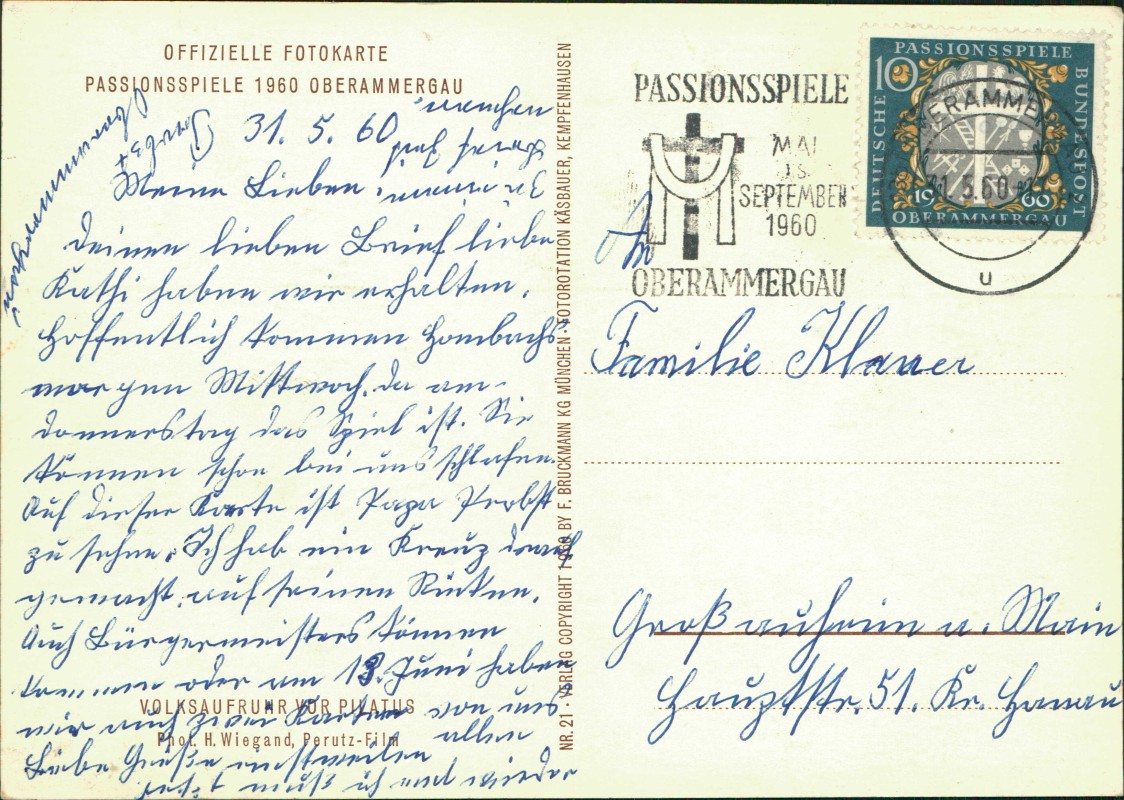 OFFIZIELLE FOTOKARTE
PASSIONSSPIELE 1960 OBERAMMERGAU
31. 5. 60
Meine Lieben
Deinen lieben Brief liebe
Kathi haben wir erhalten.
Hoffentlich kommen Hombachs
morgen Mittwoch, da am
Donnerstag das Spiel ist. Sie
können schon bei uns schlafen.
Auf dieser Karte ist Papa Probst
zu sehen. Ich hab ein Kreuz drauf
gemacht, auf seinen Rücken.
Auch Bürgermeisters können
kommen oder am 18. Juni haben
wir auch zwei Karten von uns
allen
Liebe Grüße einstweilen
jetzt muß ich mal wieder
VOLKSAUFRUHR VOR PILATUS
Phot. H. Wiegand, Perutz-Film
NR. 21 · VERLAG COPYRIGHT 1960 BY F. BRUCKMANN KG MÜNCHEN · FOTOROTATION KÄSBAUER, KEMPFENHAUSEN
PASSIONSSPIELE
MAI
BIS
SEPTEMBER
1960
OBERAMMERGAU
PASSIONSSPIELE
10
DEUTSCHE
BUNDESPOST
1960
OBERAMMERGAU
OBERAMMERGAU
31.5.60
u
An
Familie Klauer
Großauheim a. Main
Hauptstr. 51. Kr. Hanau